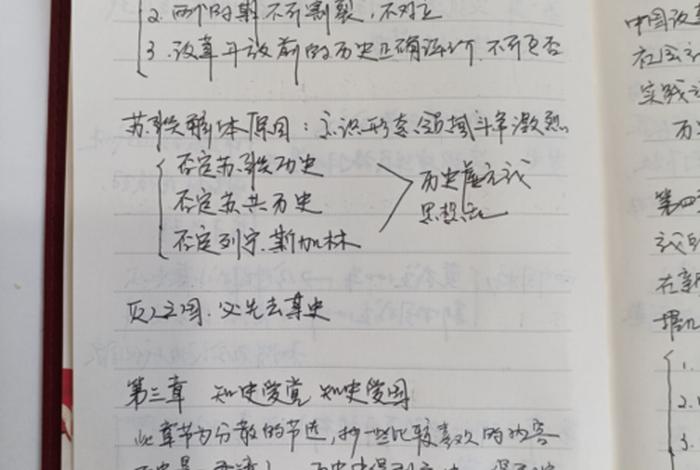 2. 两个时期不可割裂,不对立
3. 改革开放前的历史正确评价,不可否
苏联解体原因:意识形态领域斗争激烈
否定苏联历史
否定苏共历史
否定列宁.斯大林
历史虚无主义
思想乱
灭人之国.必先去其史
第三章 知史爱党 知史爱国
此章节为分散的节选,抄一些比较喜欢的内容
中国改
社会主
实践
历
第四
在新
1.
2.
3.